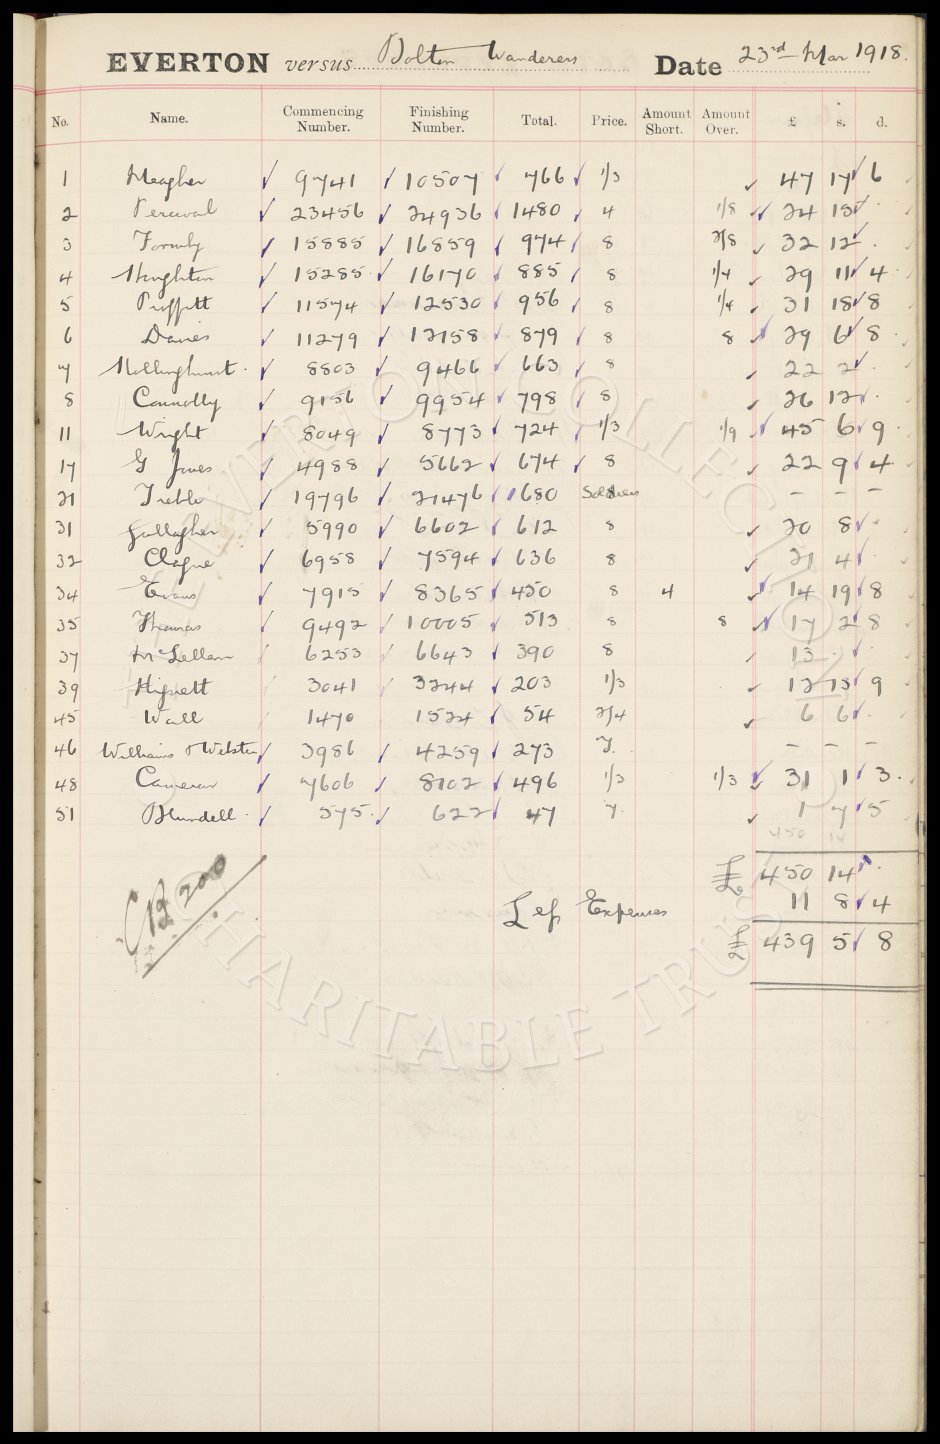 EVERTON versus Bolton Wanderers Date 23rd Mar 1918.
No. Name. Commencing Number. Finishing Number. Total. Price. Amount Short. Amount Over. £ s. d.
1 Meagher 9741 10507 766 1/3 47 17 6
2 Percival 23456 24936 1480 4 1/8 24 15 .
3 Formby 15885 16859 974 8 2/8 32 12 .
4 Houghton 15285 16170 885 8 1/4 29 11 4
5 Proffitt 11574 12530 956 8 1/4 31 18 8
6 Davies 11279 12158 879 8 8 29 6 8
7 Hollinghurst 8803 9466 663 8 22 2 .
8 Connolly 9156 9954 798 8 26 12 .
11 Wright 8049 8773 724 1/3 1/9 45 6 9
17 G Jones 4988 5662 674 8 22 9 4
21 Treble 19796 21476 1680 Soldiers - - -
31 Gallagher 5990 6602 612 8 20 8 .
32 Clague 6958 7594 636 8 21 4
34 Evans 7915 8365 450 8 4 14 19 8
35 Thomas 9492 10005 513 8 8 17 2 8
37 McLellan 6253 6643 390 8 13 . .
39 Hignett 3041 3244 203 1/3 12 13 9
45 Wall 1470 1524 54 2/4 6 6 .
46 Williams & Webster 3986 4259 273 7. - - -
48 Cameron 7606 8102 496 1/3 1/3 31 1 3.
51 Blundell 575 622 47 7 1 7 5
450 14
£ 450 14 .
CB 200
Less Expenses 11 8 4
£ 439 5 8
EVERTON COLLECTION
CHARITABLE TRUST